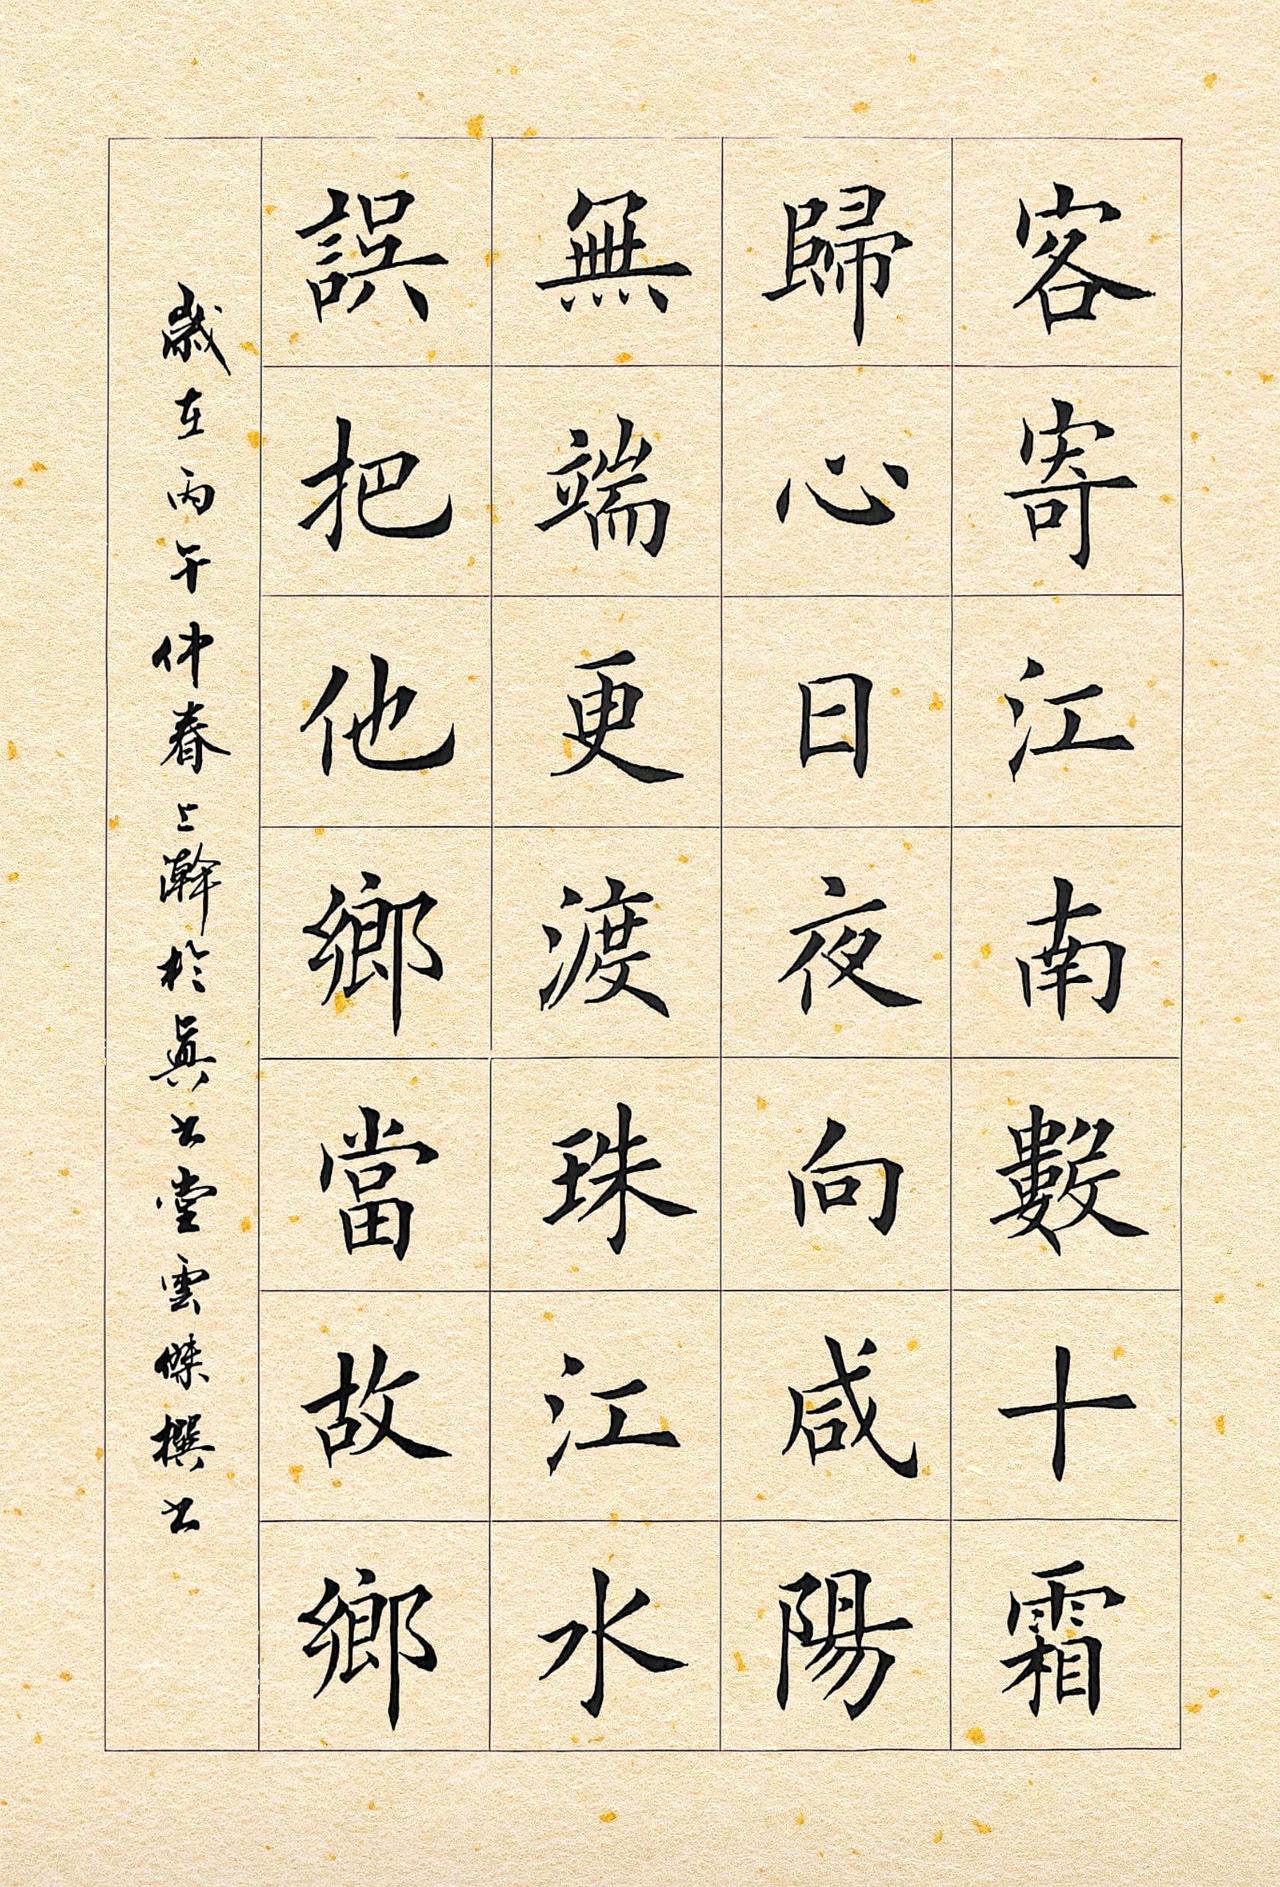 客寄江南數十霜
歸心日夜向咸陽
無端更渡珠江水
誤把他鄉當故鄉
歲在丙午仲春上澣於真書堂雲傑撰書